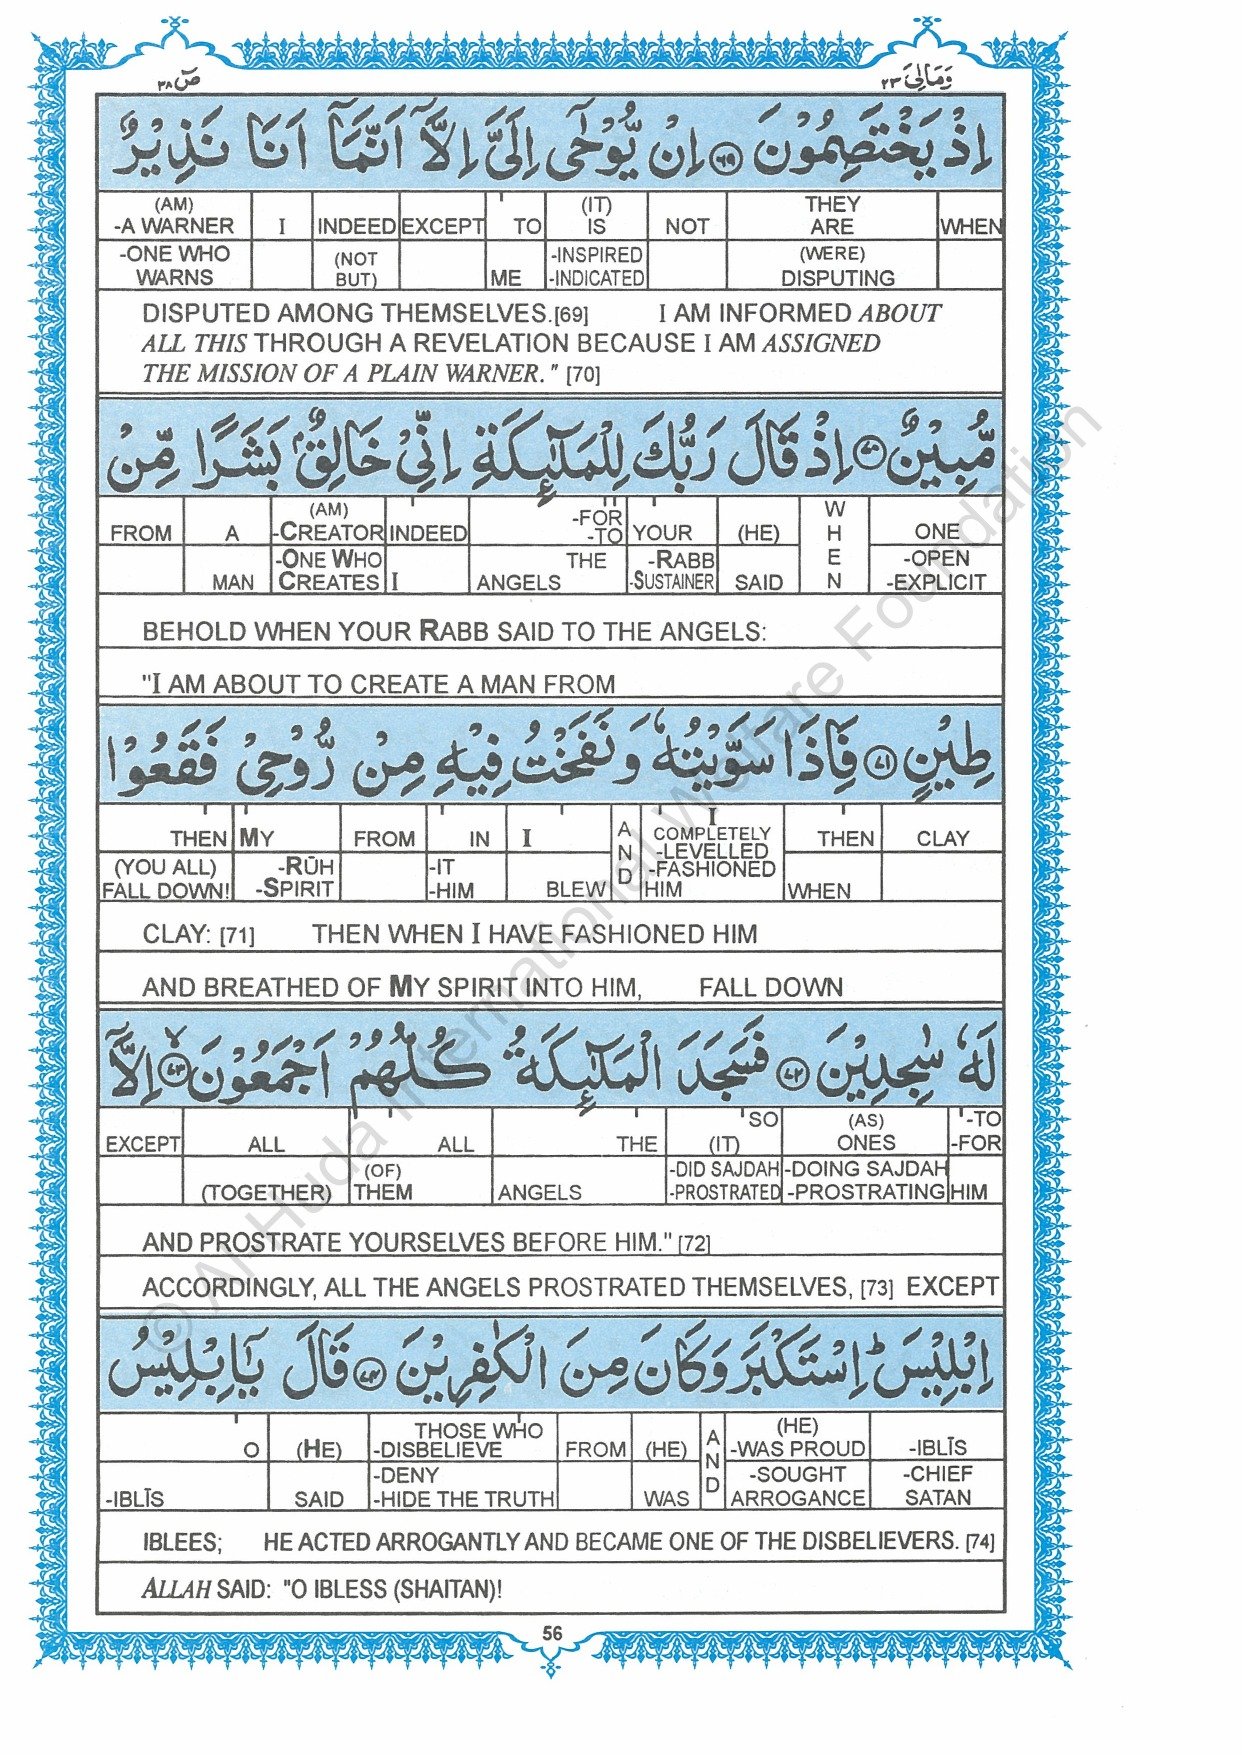 صٓ ٣٨ وَمَالِىَ ٢٣
اِذْ يَخْتَصِمُوْنَ ۝٦٩ اِنْ يُّوْحٰٓى اِلَىَّ اِلَّاۤ اَنَّمَاۤ اَنَا نَذِيْرٌ
(AM) -A WARNER I INDEED EXCEPT TO (IT) IS NOT THEY ARE WHEN
-ONE WHO WARNS (NOT BUT) ME -INSPIRED -INDICATED (WERE) DISPUTING
DISPUTED AMONG THEMSELVES.[69] I AM INFORMED ABOUT
ALL THIS THROUGH A REVELATION BECAUSE I AM ASSIGNED
THE MISSION OF A PLAIN WARNER." [70]
مُّبِيْنٌ ۝٧٠ اِذْ قَالَ رَبُّكَ لِلْمَلٰٓئِكَةِ اِنِّىْ خَالِقٌۢ بَشَرًا مِّنْ
FROM A (AM) -CREATOR INDEED -FOR -TO YOUR (HE) WHEN ONE
MAN -ONE WHO CREATES I THE ANGELS -RABB -SUSTAINER SAID -OPEN -EXPLICIT
BEHOLD WHEN YOUR RABB SAID TO THE ANGELS:
"I AM ABOUT TO CREATE A MAN FROM
طِيْنٍ ۝٧١ فَاِذَا سَوَّيْتُهٗ وَنَفَخْتُ فِيْهِ مِنْ رُّوْحِىْ فَقَعُوْا
THEN MY FROM IN I AND I COMPLETELY -LEVELLED -FASHIONED HIM THEN CLAY
(YOU ALL) FALL DOWN! -RŪH -SPIRIT -IT -HIM BLEW WHEN
CLAY: [71] THEN WHEN I HAVE FASHIONED HIM
AND BREATHED OF MY SPIRIT INTO HIM, FALL DOWN
لَهٗ سٰجِدِيْنَ ۝٧٢ فَسَجَدَ الْمَلٰٓئِكَةُ كُلُّهُمْ اَجْمَعُوْنَ ۝٧٣ۙ اِلَّاۤ
EXCEPT ALL ALL THE SO (IT) (AS) ONES -TO -FOR
(TOGETHER) (OF) THEM ANGELS -DID SAJDAH -PROSTRATED -DOING SAJDAH -PROSTRATING HIM
AND PROSTRATE YOURSELVES BEFORE HIM." [72]
ACCORDINGLY, ALL THE ANGELS PROSTRATED THEMSELVES, [73] EXCEPT
اِبْلِيْسَ ؕ اِسْتَكْبَرَ وَكَانَ مِنَ الْكٰفِرِيْنَ ۝٧٤ قَالَ يٰۤاِبْلِيْسُ
O (HE) THOSE WHO -DISBELIEVE FROM (HE) AND (HE) -WAS PROUD -IBLĪS
-IBLĪS SAID -DENY -HIDE THE TRUTH WAS -SOUGHT ARROGANCE -CHIEF SATAN
IBLEES; HE ACTED ARROGANTLY AND BECAME ONE OF THE DISBELIEVERS. [74]
ALLAH SAID: "O IBLESS (SHAITAN)!
56
© Al-Huda International Welfare Foundation